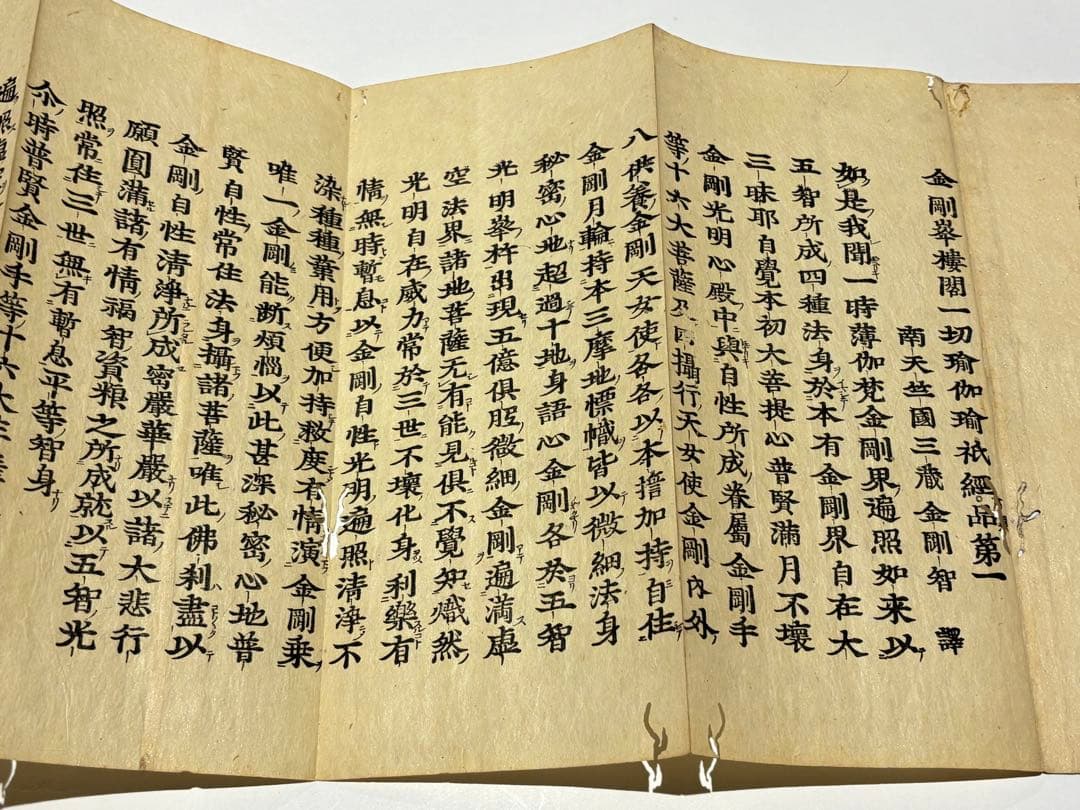 金剛峯樓閣一切瑜伽瑜祇經品第一
南天竺國三藏金剛智 譯
如是我聞一時薄伽梵金剛界遍照如來以
五智所成四種法身於本有金剛界自在大
三昧耶自覺本初大菩提心普賢滿月不壞
金剛光明心殿中與自性所成眷屬金剛手
等十六大菩薩及四攝行天女使金剛內外
八供養金剛天女使各各以本擔加持自住
金剛月輪持本三摩地幖幟皆以微細法身
秘密心地超過十地身語心金剛各於五智
光明峯杵出現五億俱胝微細金剛遍滿虛
空法界諸地菩薩无有能見俱不覺知熾然
光明自在威力常於三世不壞化身利樂有
情無時暫息以金剛自性光明遍照清淨不
染種種業用方便加持救度有情演金剛乘
唯一金剛能断煩惱以此甚深秘密心地普
賢自性常住法身攝諸菩薩唯此佛刹盡以
金剛自性清淨所成密嚴華嚴以諸大悲行
願圓滿諸有情福智資糧之所成就以五智光
照常住三世無有暫息平等智身
尒時普賢金剛手等十六大